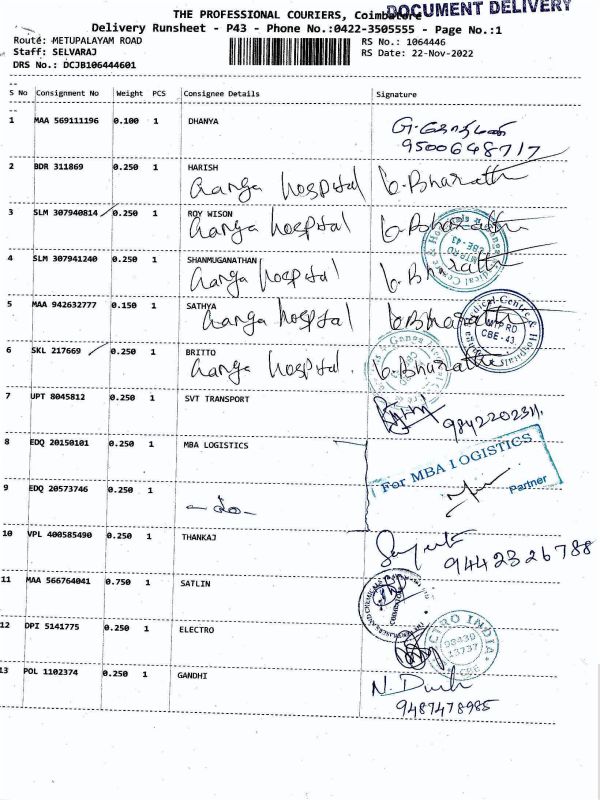 THE PROFESSIONAL COURIERS, Coimbatore
DOCUMENT DELIVERY
Delivery Runsheet - P43 - Phone No.:0422-3505555 - Page No.:1
Route: METUPALAYAM ROAD
RS No.: 1064446
Staff: SELVARAJ
RS Date: 22-Nov-2022
DRS No.: DCJB106444601
S No Consignment No Weight PCS Consignee Details Signature
1 MAA 569111196 0.100 1 DHANYA
9500648717
2 BDR 311869 0.250 1 HARISH
Ganga hospital G.Bharath
3 SLM 307940814 0.250 1 ROY WISON
Ganga hospital G.Bharath
4 SLM 307941240 0.250 1 SHANMUGANATHAN
Ganga hospital G.Bharath
5 MAA 942632777 0.150 1 SATHYA
Ganga hospital G.Bharath
MTP RD
CBE-43
6 SKL 217669 0.250 1 BRITTO
Ganga hospital. G.Bharath
7 UPT 8045812 0.250 1 SVT TRANSPORT
9842202311.
8 EDQ 20150101 0.250 1 MBA LOGISTICS
For MBA LOGISTICS
Partner
9 EDQ 20573746 0.250 1
10 VPL 400585490 0.250 1 THANKAJ
9442326788
11 MAA 566764041 0.750 1 SATLIN
12 DPI 5141775 0.250 1 ELECTRO
ELECTRO INDIA
98430
13737
CBE
13 POL 1102374 0.250 1 GANDHI
9487478985